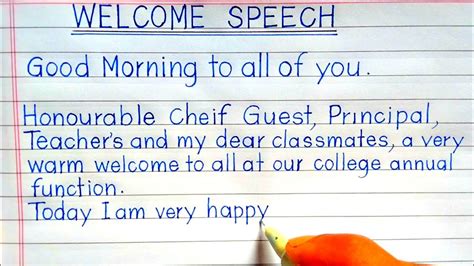 WELCOME SPEECH
Good Morning to all of you.
Honourable Cheif Guest, Principal,
Teacher's and my dear classmates, a very
warm welcome to all at our college annual
function.
Today I am very happy